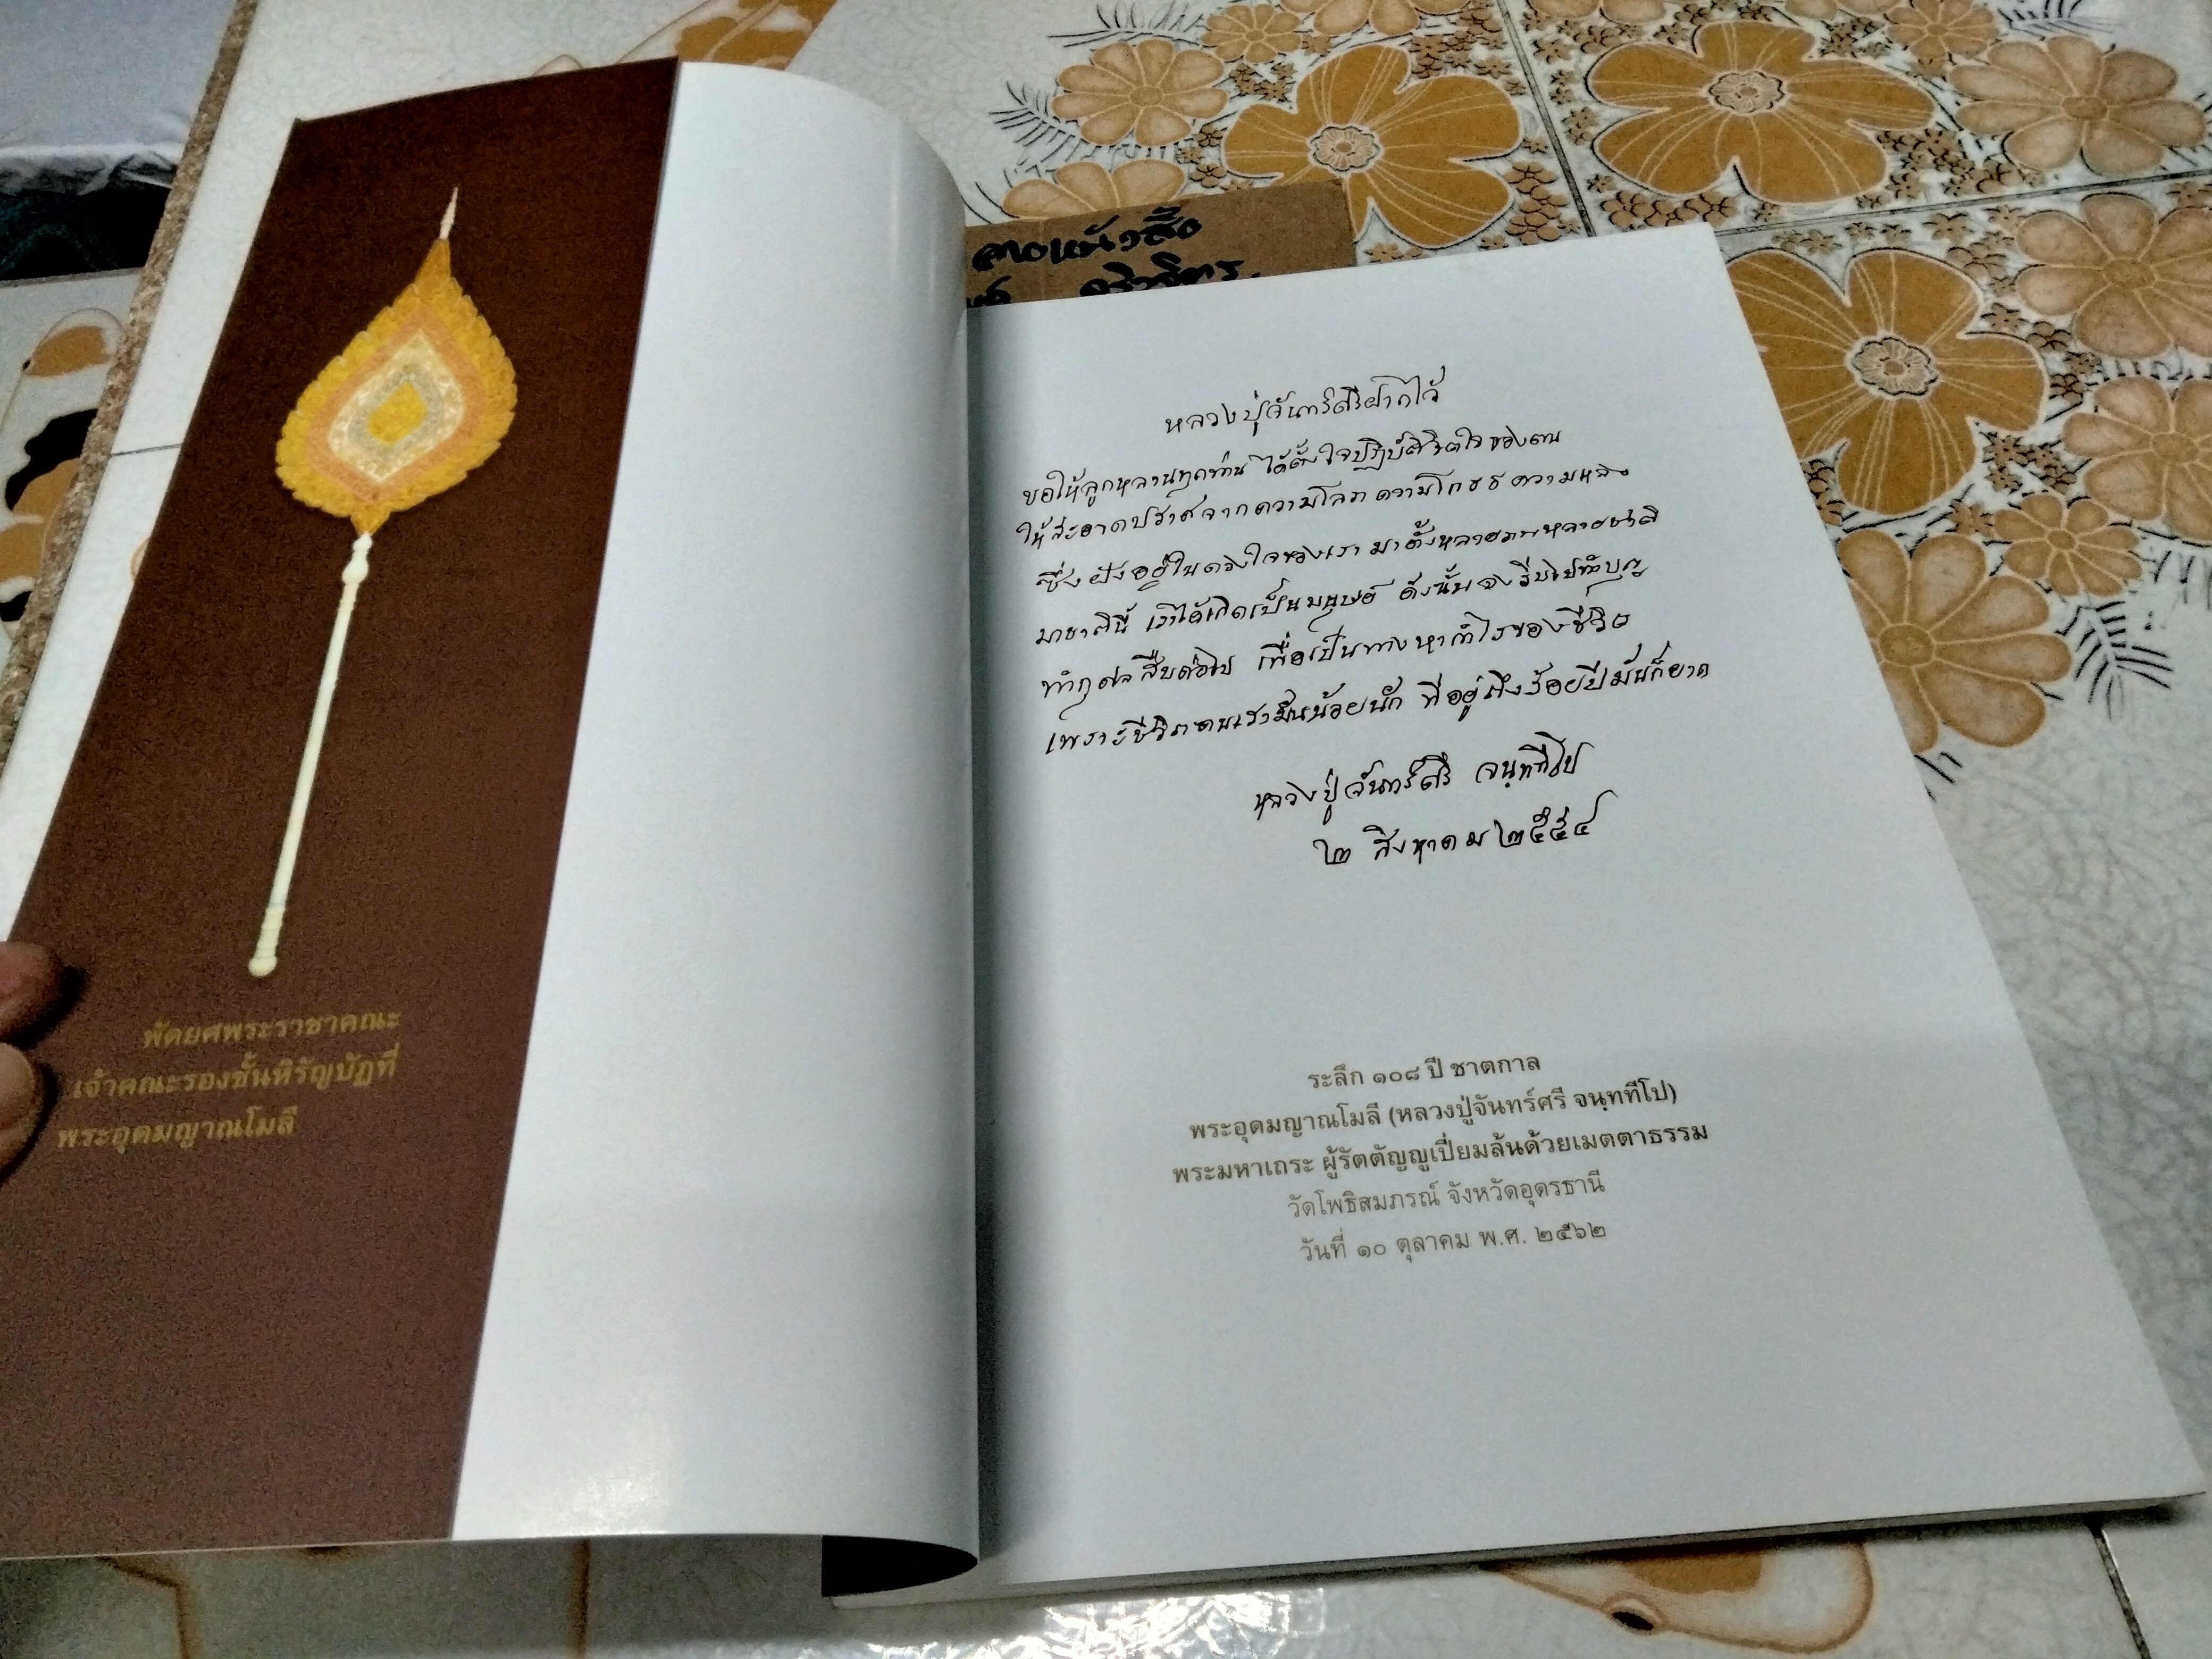 พัดยศพระราชาคณะ
เจ้าคณะรองชั้นหิรัญบัฏที่
พระอุดมญาณโมลี
หลวงปู่จันทร์ศรีฝากไว้
ขอให้ลูกหลานทุกท่าน ได้ตั้งใจปฏิบัติจิตใจของตน
ให้สะอาดปราศจากความโลภ ความโกรธ ความหลง
ซึ่งฝังอยู่ในดวงใจของเรา มาตั้งหลายภพหลายชาติ
มาชาตินี้ เราได้เกิดเป็นมนุษย์ ดังนั้นจงรีบไปทำบุญ
ทำกุศลสืบต่อไป เพื่อเป็นทางหากำไรของชีวิต
เพราะชีวิตคนเรามันน้อยนัก ที่อยู่ถึงร้อยปีมันก็ยาก
หลวงปู่จันทร์ศรี จนฺททีโป
๒ สิงหาคม ๒๕๕๔
ระลึก ๑๐๘ ปี ชาตกาล
พระอุดมญาณโมลี (หลวงปู่จันทร์ศรี จนฺททีโป)
พระมหาเถระ ผู้รัตตัญญูเปี่ยมล้นด้วยเมตตาธรรม
วัดโพธิสมภรณ์ จังหวัดอุดรธานี
วันที่ ๑๐ ตุลาคม พ.ศ. ๒๕๖๒